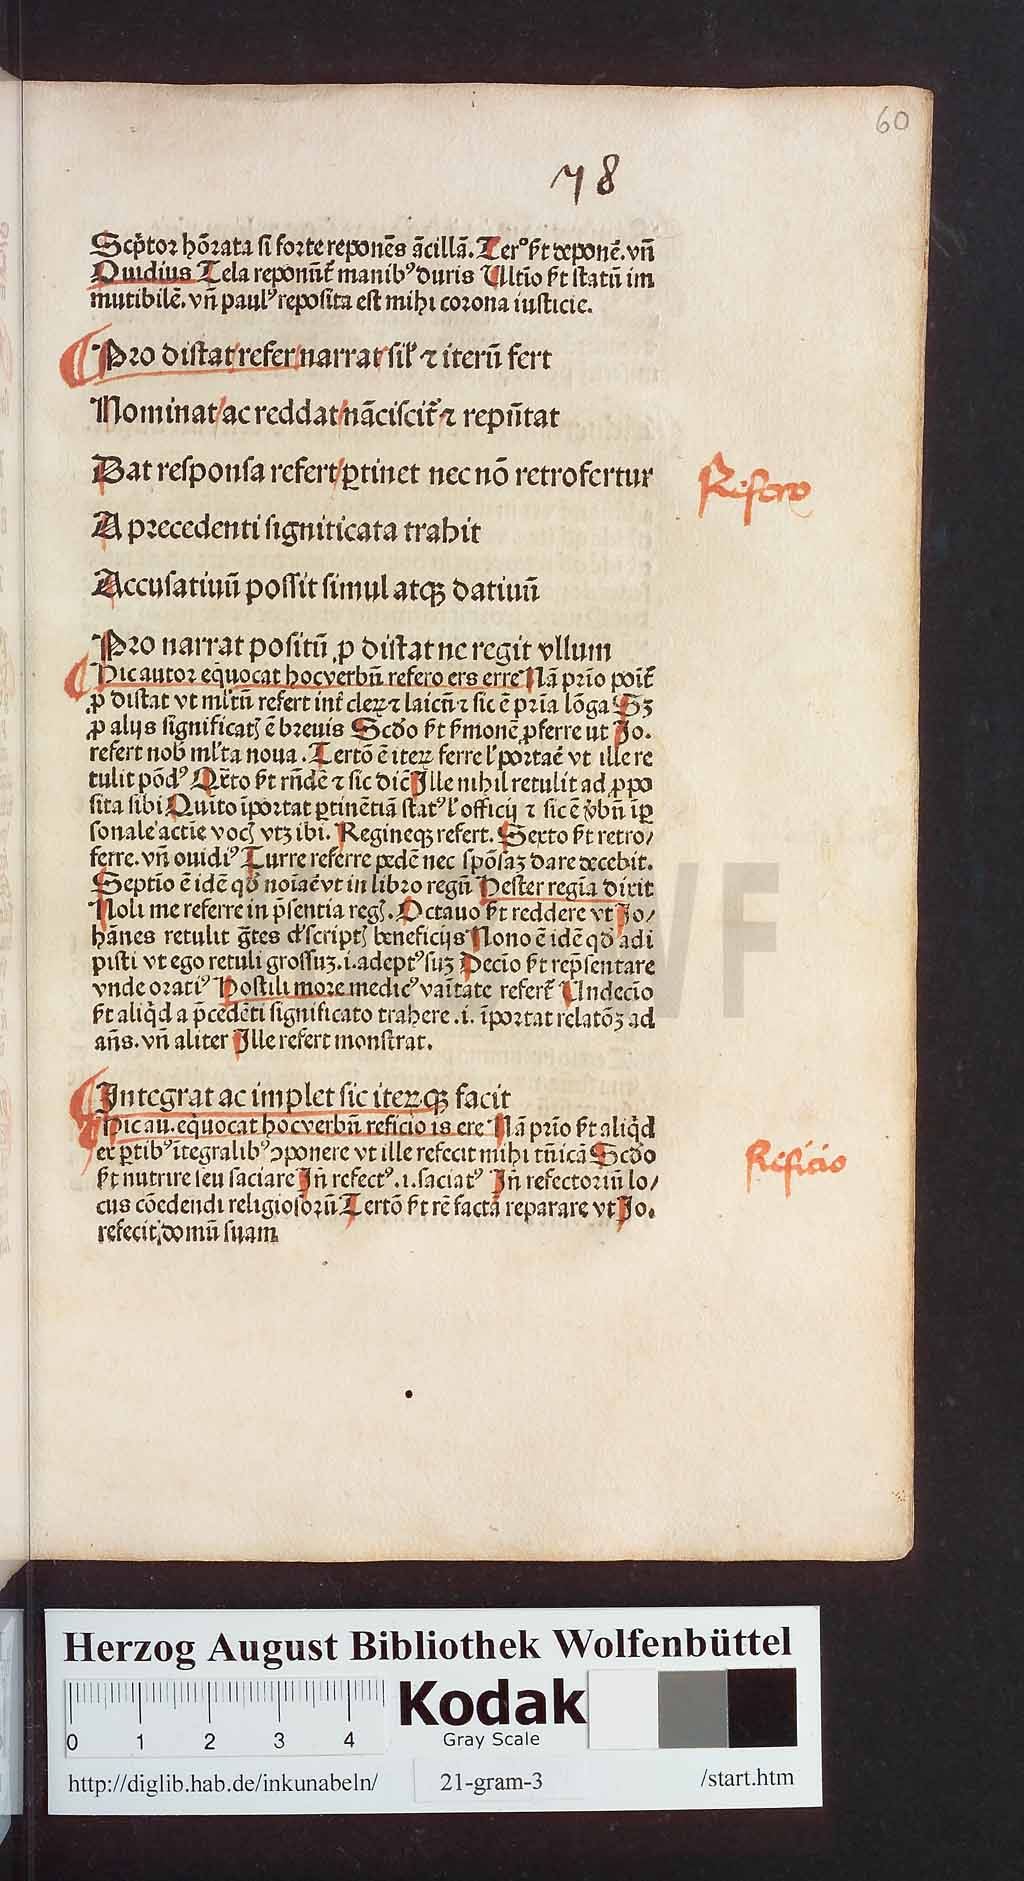 60
78
Scp̄tor hōrata si forte reponēs ācillā. Ter° s̄t deponē. vn̄
Ouidius Tela reponūt̄ manibꝰ duris Ultīo s̄t statū im
mutibilē. vn̄ paulꝰ reposita est mihi corona iusticie.
Pro distat refer narrat sil̄ ⁊ iterū fert
Nominat ac reddat nāciscit̄ ⁊ repn̄tat
Dat responsa refert ꝑtinet nec nō retrofertur
A precedenti signiticata trahit
Accusatiuū possit simul atqꝫ datiuū
Pro narrat positū ꝓ distat ne regit vllum
Hic autor equocat hocverbū refero ers erre Nā prīo poīt̄
ꝓ distat vt ml̄tū refert int̄ cleꝝ ⁊ laicū ⁊ sic ē prīa lōga Sꝫ
ꝓ alijs significatꝭ ē breuis Scdo s̄t s̄monē ꝓferre ut Jo.
refert nob̄ ml̄ta noua. Tertō ē iteꝝ ferre l̄ portaē vt ille re
tulit pōdꝰ Qr̄to s̄t rn̄dē ⁊ sic diē Ille nihil retulit ad ꝓpo
sita sibi Quito īportat ꝑtinētiā statꝰ l̄ officij ⁊ sic ē v̄bū īꝑ
sonale actīe vocꝭ vtꝫ ibi. Regineqꝫ refert. Sexto s̄t retro/
ferre. vn̄ ouidiꝰ Turre referre pedē nec spōsaꝫ dare decebit.
Septīo ē idē qd̄ noīaē vt in libro regū Hester regīa dixit
Noli me referre in p̄sentia regꝭ. Octauo s̄t reddere vt Jo/
hānes retulit ḡtes d̓scriptꝭ beneficijs Nono ē idē qd̄ adi
pisti vt ego retuli grossuꝫ .i. adeptꝰ suꝫ Decīo s̄t rep̄sentare
vnde oratiꝰ Postili more medicꝰ vaītate refert̄ Undecīo
s̄t aliq̄d a p̄cedēti significato trahere .i. īportat relatōꝫ ad
an̄s. vn̄ aliter Ille refert monstrat.
Integrat ac implet sic iteꝝqꝫ facit
Hic au. equocat hocverbū reficio is ere Nā prīo s̄t aliq̄d
ex ꝑtibꝰ ītegralibꝰ ꝯponere vt ille refecit mihi tūicā Scdo
s̄t nutrire seu saciare Jn̄ refectꝰ .i. saciatꝰ Jn̄ refectoriū lo/
cus cōedendi religiosorū Tertō s̄t rē factā reparare vt Jo.
refecit domū suam
Refero
Reficio
HAB WF
Herzog August Bibliothek Wolfenbüttel
0 1 2 3 4
Kodak
Gray Scale
http://diglib.hab.de/inkunabeln/ 21-gram-3 /start.htm